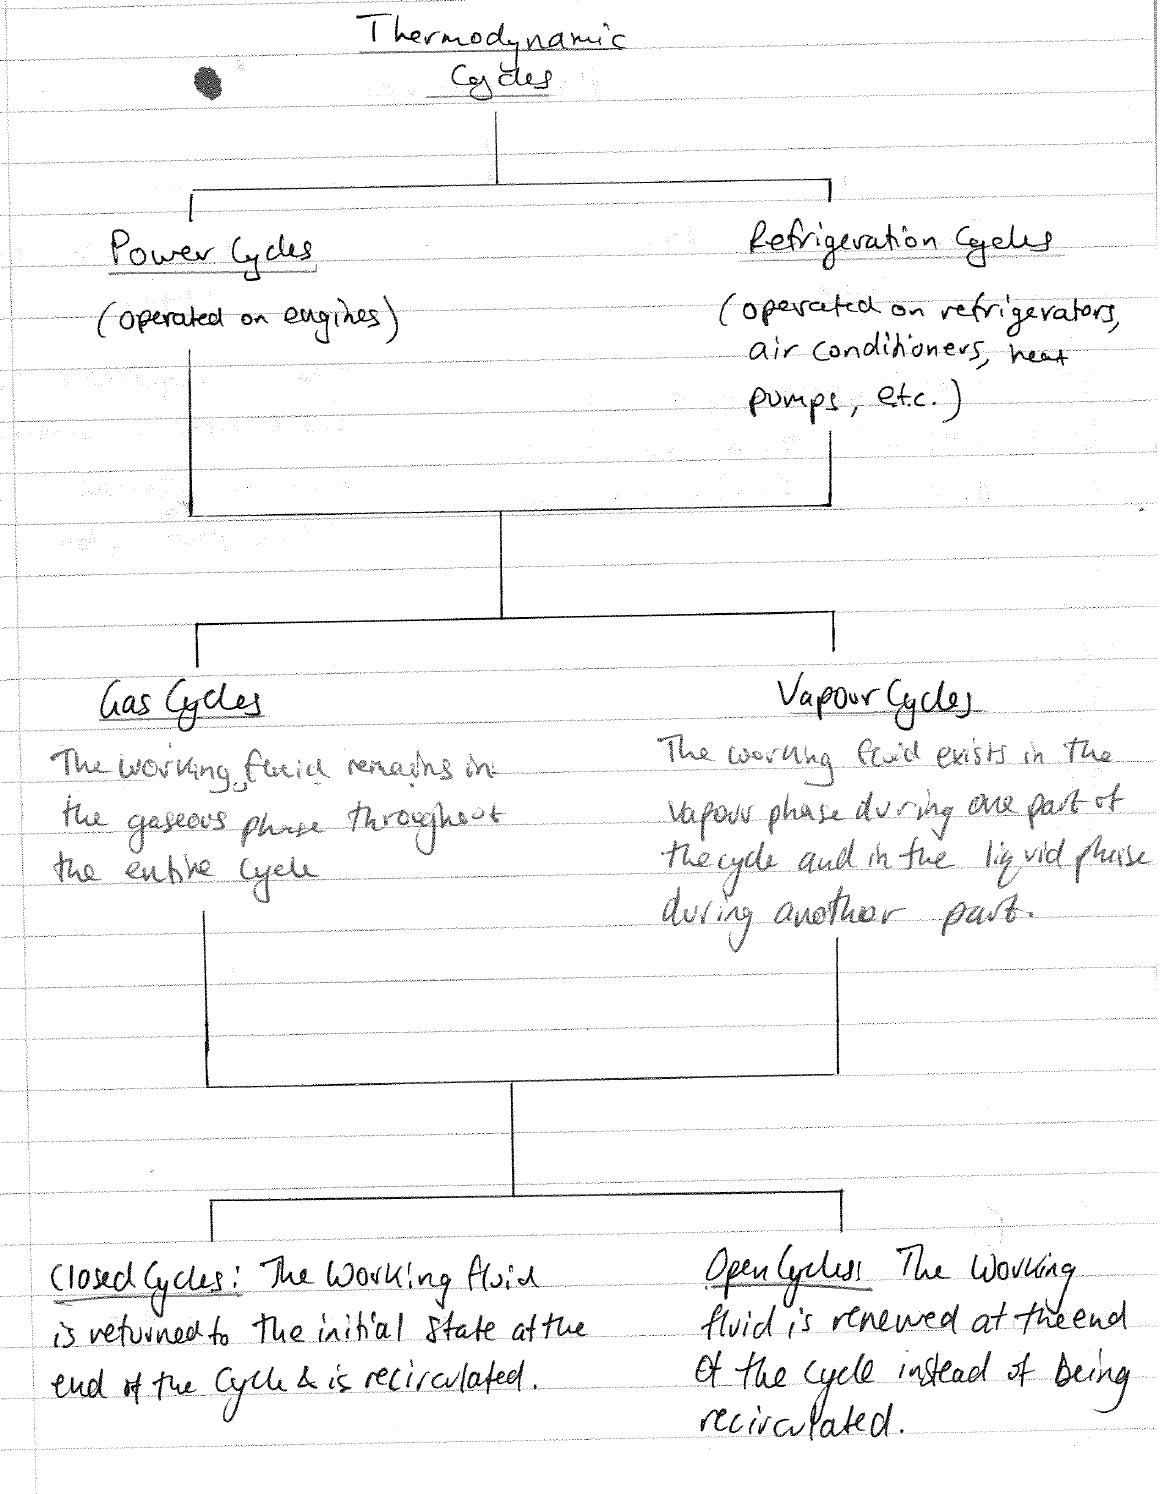 Thermodynamic
Cycles
Power Cycles
(operated on engines)
Refrigeration Cycles
(operated on refrigerators,
air conditioners, heat
pumps, etc.)
Gas Cycles
The working fluid remains in
the gaseous phase throughout
the entire cycle
Vapour Cycles
The working fluid exists in the
vapour phase during one part of
the cycle and in the liquid phase
during another part.
Closed Cycles: The working fluid
is returned to the initial state at the
end of the cycle & is recirculated.
Open Cycles: The working
fluid is renewed at the end
of the cycle instead of being
recirculated.